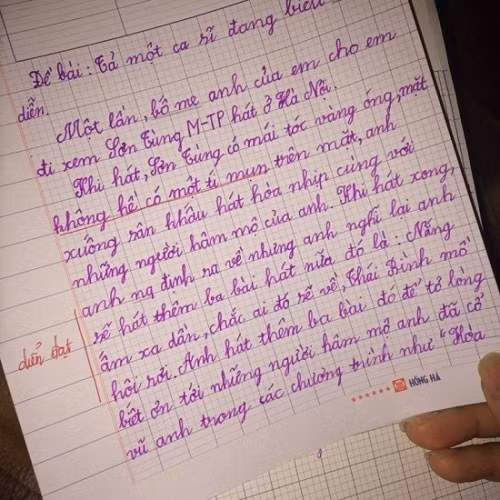 Đề bài: Tả một ca sĩ đang biểu
diễn.
Một lần, bố mẹ anh của em cho em
đi xem Sơn Tùng M-TP hát ở Hà Nội.
Khi hát, Sơn Tùng có mái tóc vàng óng, mắt
không hề có một tí mụn trên mặt, anh
xuống sân khấu hát hòa nhịp cùng với
những người hâm mộ của anh. Khi hát xong,
anh ng định ra về nhưng anh nghĩ lại anh
sẽ hát thêm ba bài hát nữa đó là: Nắng
ấm xa dần, chắc ai đó sẽ về, Thái Bình mồ
hôi rơi. Anh hát thêm ba bài đó để tỏ lòng
biết ơn tới những người hâm mộ anh đã cổ
vũ anh trong các chương trình như "Hòa
diễn đạt
HỒNG HÀ